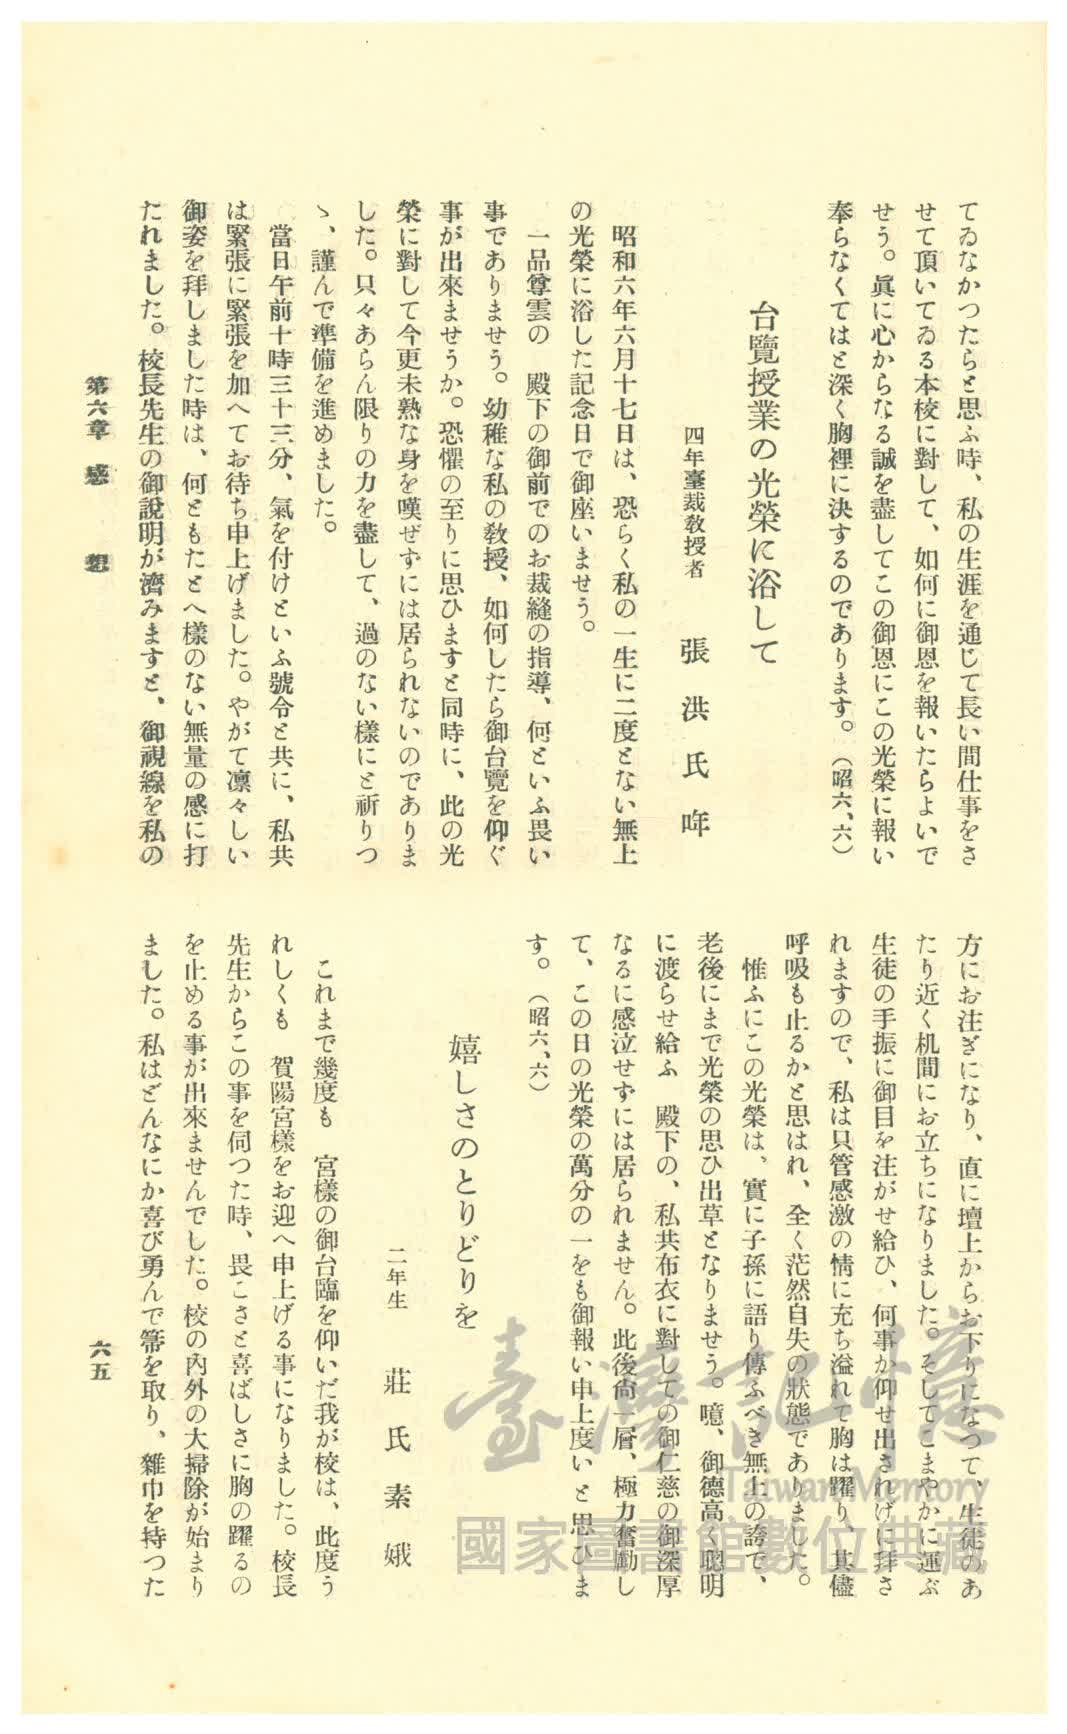 てゐなかつたらと思ふ時、私の生涯を通じて長い間仕事をさ
せて頂いてゐる本校に對して、如何に御恩を報いたらよいで
せう。眞に心からなる誠を盡してこの御恩にこの光榮に報い
奉らなくてはと深く胸裡に決するのであります。（昭六、六）
台覽授業の光榮に浴して
四年臺裁教授者　張洪氏哖
昭和六年六月十七日は、恐らく私の一生に二度とない無上
の光榮に浴した記念日で御座いませう。
一品尊雲の　殿下の御前でのお裁縫の指導、何といふ畏い
事でありませう。幼稚な私の教授、如何したら御台覽を仰ぐ
事が出來ませうか。恐懼の至りに思ひますと同時に、此の光
榮に對して今更未熟な身を嘆ぜずには居られないのでありま
した。只々あらん限りの力を盡して、過のない樣にと祈りつ
ゝ、謹んで準備を進めました。
當日午前十時三十三分、氣を付けといふ號令と共に、私共
は緊張に緊張を加へてお待ち申上げました。やがて凛々しい
御姿を拜しました時は、何ともたとへ樣のない無量の感に打
たれました。校長先生の御說明が濟みますと、御視線を私の
方にお注ぎになり、直に壇上からお下りになつて、生徒のあ
たり近く机間にお立ちになりました。そしてこまやかに運ぶ
生徒の手振に御目を注がせ給ひ、何事か仰せ出されげに拜さ
れますので、私は只管感激の情に充ち溢れて胸は躍り、其儘
呼吸も止るかと思はれ、全く茫然自失の狀態でありました。
惟ふにこの光榮は、實に子孫に語り傳ふべき無上の誇で、
老後にまで光榮の思ひ出草となりませう。噫、御德高く聰明
に渡らせ給ふ　殿下の、私共布衣に對しての御仁慈の御深厚
なるに感泣せずには居られません。此後尙一層、極力奮勵し
て、この日の光榮の萬分の一をも御報い申上度いと思ひま
す。（昭六、六）
嬉しさのとりどりを
二年生　莊氏素娥
これまで幾度も　宮樣の御台臨を仰いだ我が校は、此度う
れしくも　賀陽宮樣をお迎へ申上げる事になりました。校長
先生からこの事を伺つた時、畏こさと喜ばしさに胸の躍るの
を止める事が出來ませんでした。校の內外の大掃除が始まり
ました。私はどんなにか喜び勇んで箒を取り、雜巾を持つた
第六章　感想
六五
臺灣記憶
Taiwan Memory
國家圖書館數位典藏